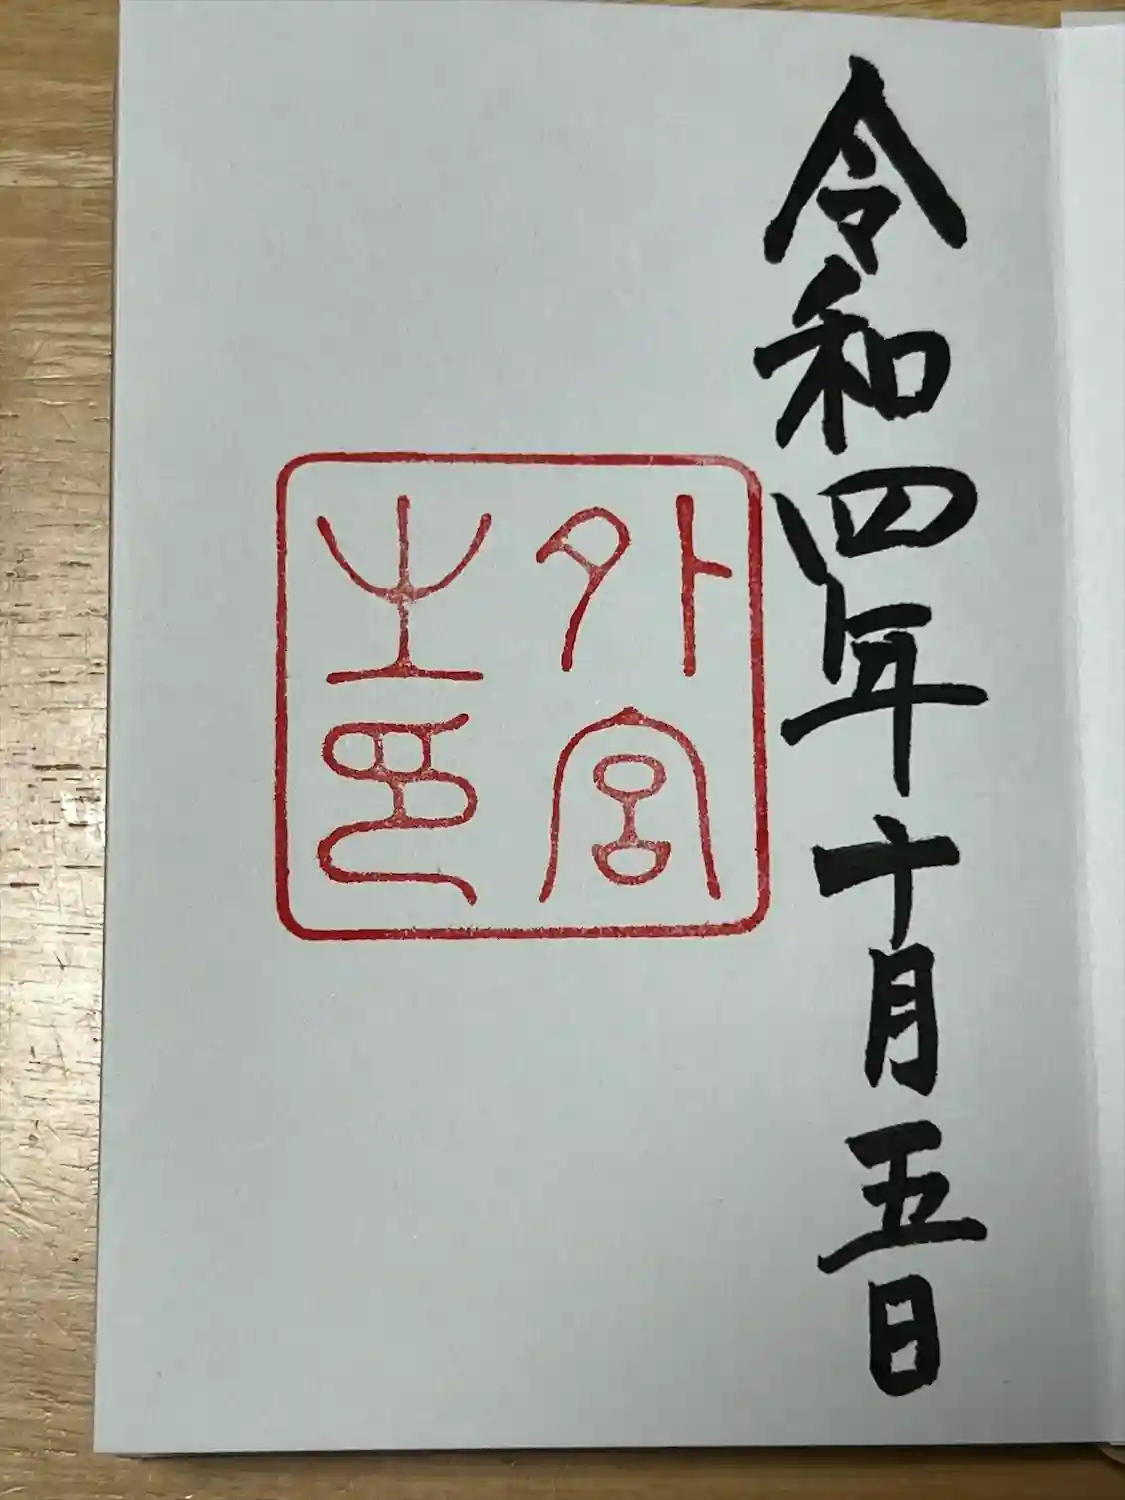 令和四年十月五日
外宮
之印